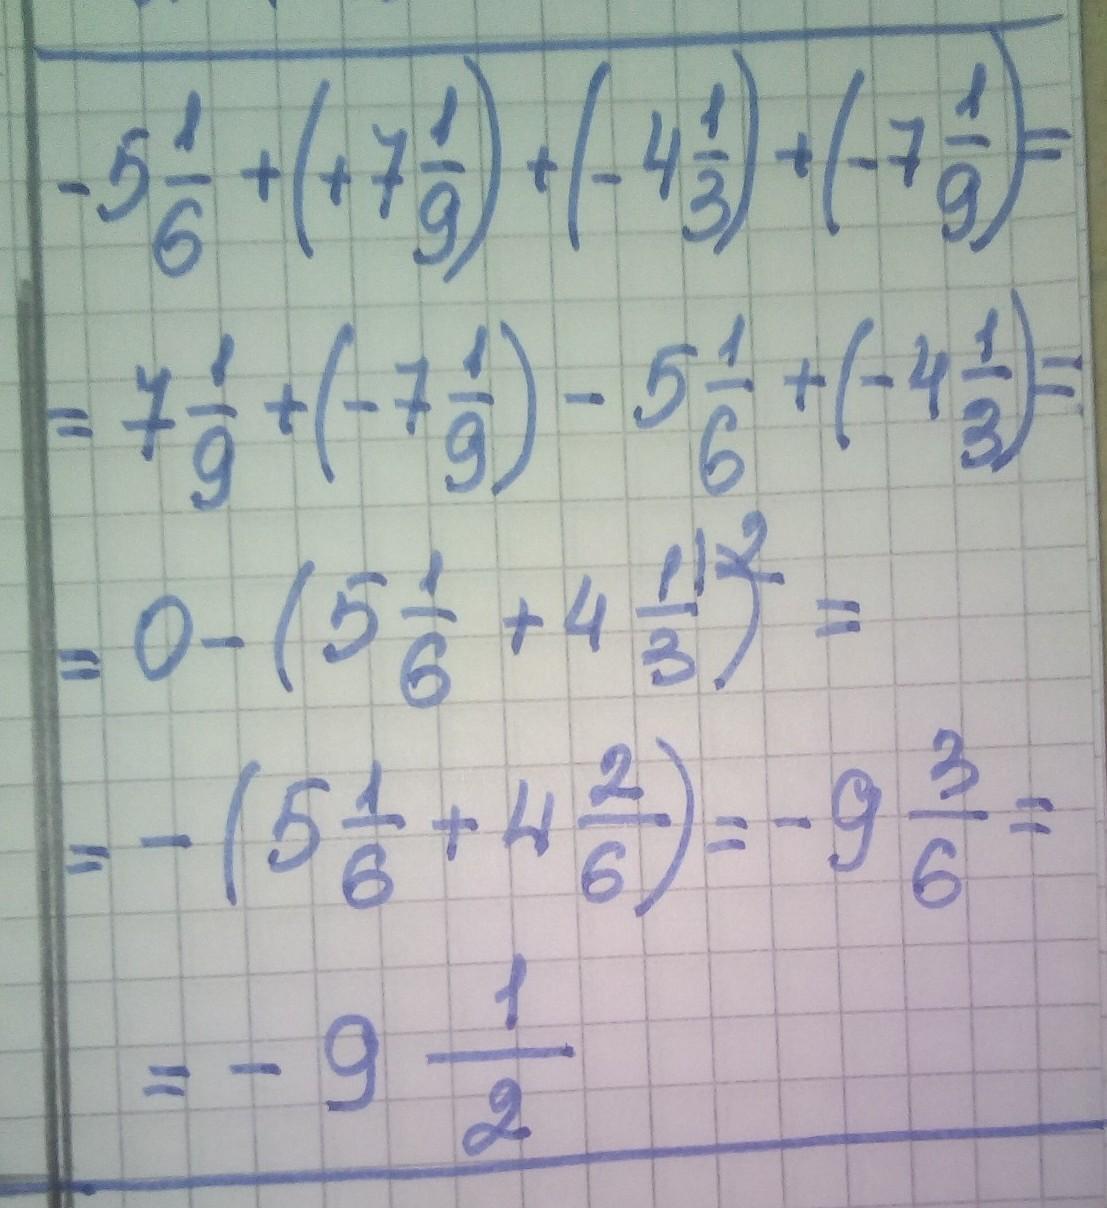 -5 1/6 + (+7 1/9) + (-4 1/3) + (-7 1/9) =
= 7 1/9 + (-7 1/9) - 5 1/6 + (-4 1/3) =
= 0 - (5 1/6 + 4 1/3 \2) =
= - (5 1/6 + 4 2/6) = - 9 3/6 =
= - 9 1/2